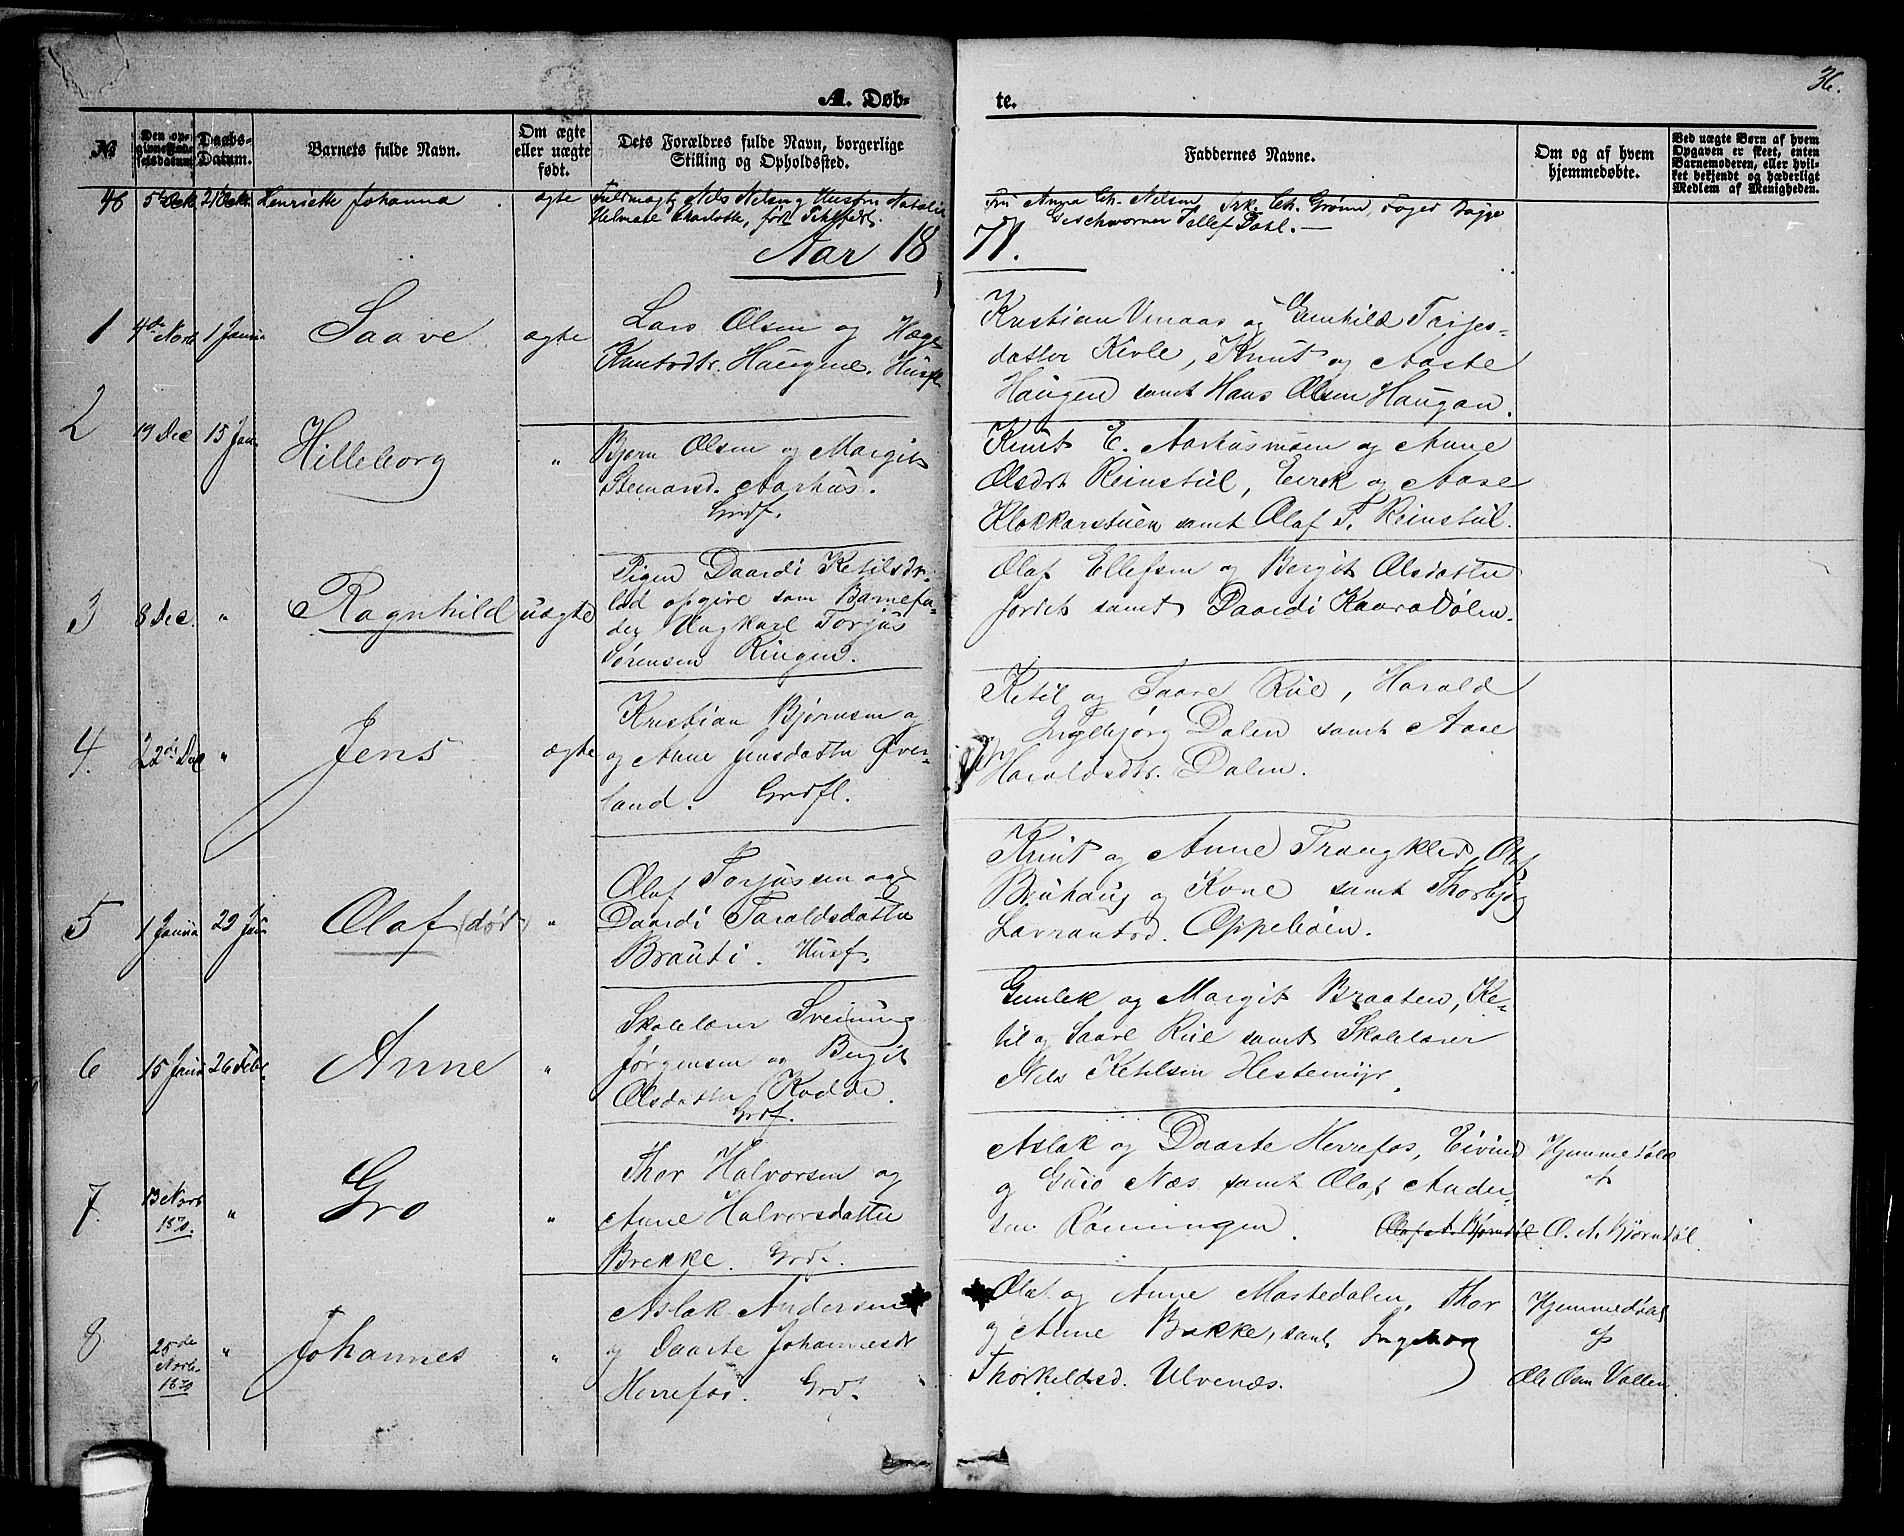 36.
A. Døb-
te.
No
Den opgivne Fødselsdatum.
Daabs-Datum.
Barnets fulde Navn.
Om ægte eller uægte født.
Dets Forældres fulde Navn, borgerlige Stilling og Opholdsted.
Faddernes Navne.
Om og af hvem hjemmedøbte.
Ved uægte Børn af hvem Opgaven er skeet, enten Barnemoderen, eller hvilket bekjendt og hæderligt Medlem af Menigheden.
48 5te Octr 21 Octr. Henriette Johanna ægte Fuldmægtg Nils Nelsen og Hustru Natalie
Helmale Charlotte, født
Fru Anna Ch. Nelsen, Frk. Ch. Grønn, Foged Bagge
Geschworner Tellef Dahl.
Aar 18
71.
1 4de Novb 1 Janua Saave ægte
Lars Olsen og Hæge
Knutsdtr. Haugene. Husf.
Kristian Vinaas og Gunhild Terjes-
datter Kivle, Knut og Aaste
Haugen samt Hans Olsen Haugan.
2 19 Dec 15 Jan. Hilleborg "
Bjørn Olsen og Margit
Steinarsd. Aarhus.
Grdf.
Knut E. Aarhusmoen og Anne
Olsdtr Reinstul, Eirek og Aase
Klokkarstuen samt Olaf T. Reinstul.
3 8 Dec. " Ragnhild uægte
Pigen Daardi Ketilsdr.
lod opgive som Barnefa-
der Ungkarl Torjus
Sørensen Ringen.
Olaf Ellefsen og Bergit Olsdatter
Jordet samt Daardi Kaaradølen.
4. 22de Dec " Jens ægte
Kristian Bjørnsen og
og Anne Jensdatter Øver-
land. Grdfl.
Ketil og Saave Rue, Harald
og Ingebjørg Dalen samt Aase
Haraldsdtr. Dalen.
5 1 Janua 29 Jan Olaf (død) "
Olaf Torjussen og
Daardi Taraldsdatter
Brauti. Husf.
Knut og Anne Trongkleiv, Olaf
Bruhaug og Kone samt Thorbjørg
Lavrantsd. Oppebøen.
6 15 Janu 26 Febr. Anne "
Skolelærer Sveinung
Jørgensen og Bergit
Olsdatter Kodde.
Grdf.
Gunlek og Margit Braaten, Ke-
til og Saave Rue samt Skolelærer
Nils Ketilsen Hestemyr.
7. 13 Novb 1870. " Gro "
Thor Halvorsen og
Anne Halvorsdatter
Brekke. Grdf.
Aslak og Daarte Herrefos, Eivind
og Guro Næs samt Olaf Ander-
sen Rønningen. Olaf A. Bjørndøl
Hjemmedøbt
af
O. A. Bjørndøl.
8 25de Novb. 1870 " Johannes "
Aslak Andersen
og Daarte Johannesdr
Herrefos. Grdf.
Olaf og Anne Mostedalen, Thor
og Anne Brekke, samt Ingeborg
Thorkeldsd. Ulvenæs.
Hjemmedøbt
af
Ole Osm Vallen.